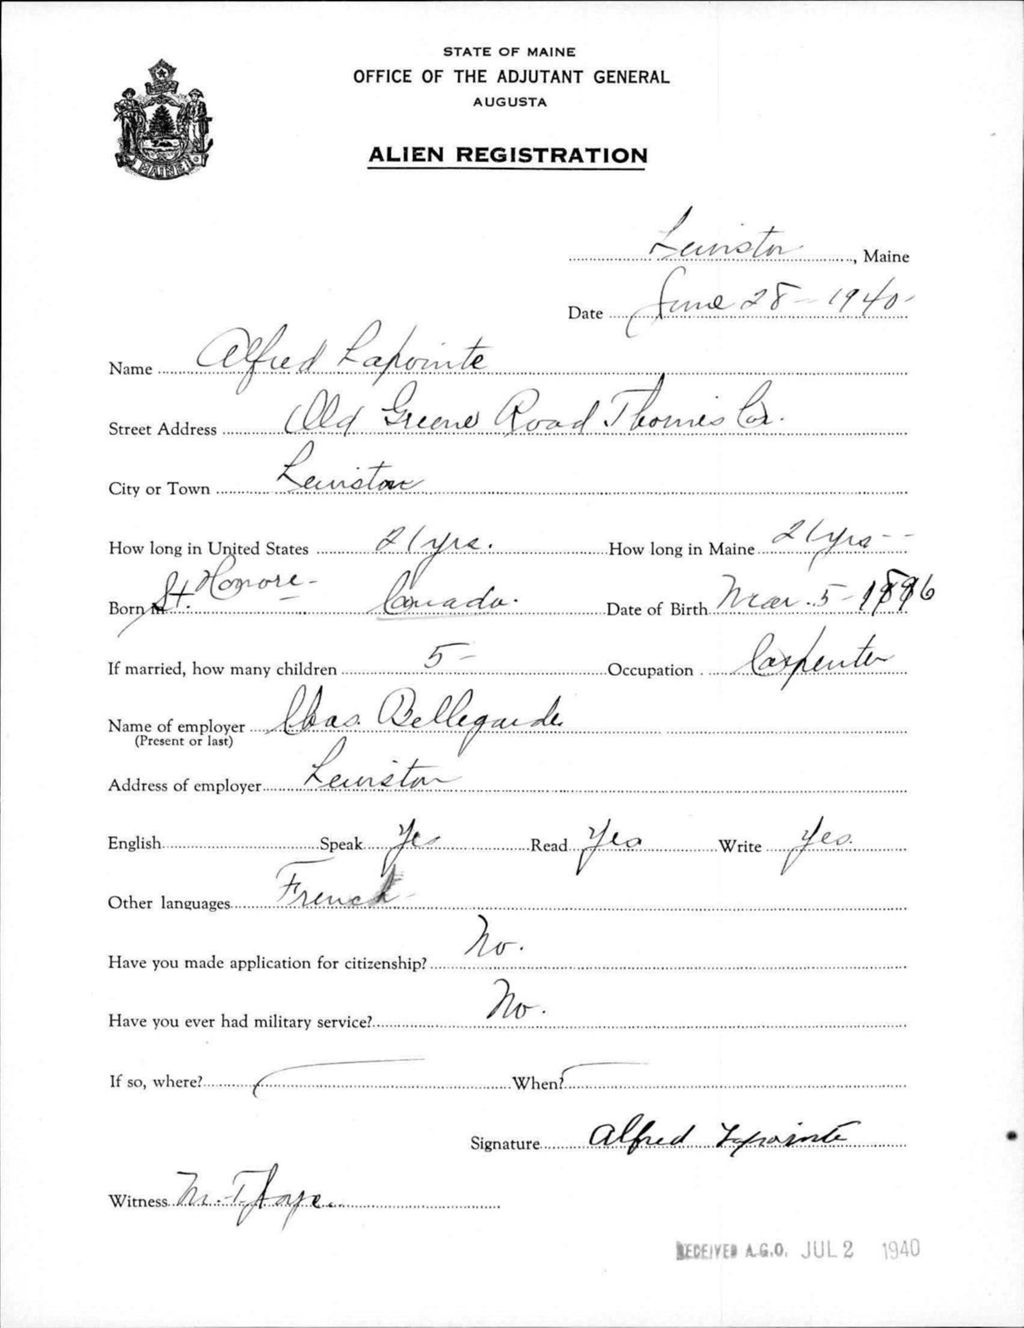 STATE OF MAINE
OFFICE OF THE ADJUTANT GENERAL
AUGUSTA
ALIEN REGISTRATION
MAINE
Lewiston, Maine
Date June 28 - 1940 -
Name Alfred Lapointe
Street Address Old Greene Road Thornes Cor.
City or Town Lewiston
How long in United States 21 yrs. How long in Maine 21 yrs - -
Born in St. Honore - Canada. Date of Birth Mar. 5 - 1896
If married, how many children 5 - Occupation Carpenter
Name of employer Chas. Bellegarde
(Present or last)
Address of employer Lewiston
English Speak Yes Read Yes Write Yes.
Other languages French -
Have you made application for citizenship? No.
Have you ever had military service? No.
If so, where? When?
Signature Alfred Lapointe
Witness M.
RECEIVED A.G.O. JUL 2 1940